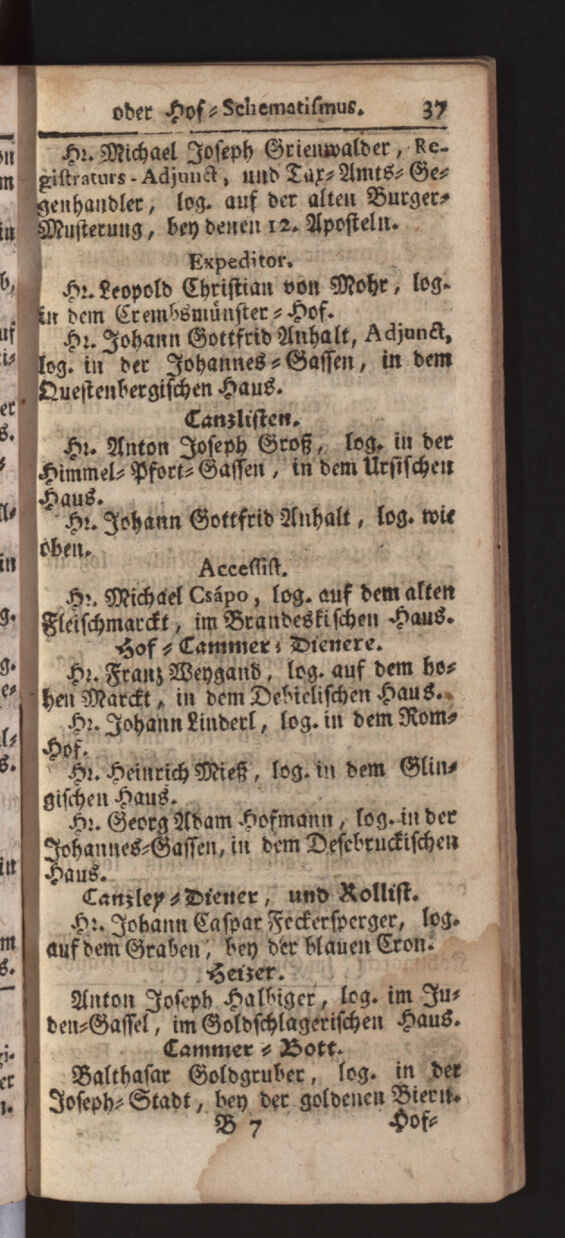 oder Hof-Schematismus. 37
Hr. Michael Joseph Grienwalder, Re-
gistraturs-Adjunct, und Tax-Amts-Ge-
genhandler, log. auf der alten Burger-
Musterung, bey denen 12. Aposteln.
Expeditor.
Hr. Leopold Christian von Mohr, log.
in dem Crembsmünster-Hof.
Hr. Johann Gottfrid Anhalt, Adjunct,
log. in der Johannes-Gassen, in dem
Questenbergischen Haus.
Canzlisten.
Hr. Anton Joseph Groß, log. in der
Himmel-Pfort-Gassen, in dem Ursischen
Haus.
Hr. Johann Gottfrid Anhalt, log. wie
oben.
Accessist.
Hr. Michael Csápo, log. auf dem alten
Fleischmarckt, im Brandeskischen Haus.
Hof-Cammer-Dienere.
Hr. Franz Weygand, log. auf dem ho-
hen Marckt, in dem Debielischen Haus.
Hr. Johann Linderl, log. in dem Rom-
Hof.
Hr. Heinrich Mieß, log. in dem Glin-
gischen Haus.
Hr. Georg Adam Hofmann, log. in der
Johannes-Gassen, in dem Desebruckischen
Haus.
Canzley-Diener, und Rollist.
Hr. Johann Caspar Feckersperger, log.
auf dem Graben, bey der blauen Cron.
Heizer.
Anton Joseph Halbiger, log. im Ju-
den-Gassel, im Goldschlagerischen Haus.
Cammer-Bott.
Balthasar Goldgruber, log. in der
Joseph-Stadt, bey der goldenen Biern.
B 7 Hof-